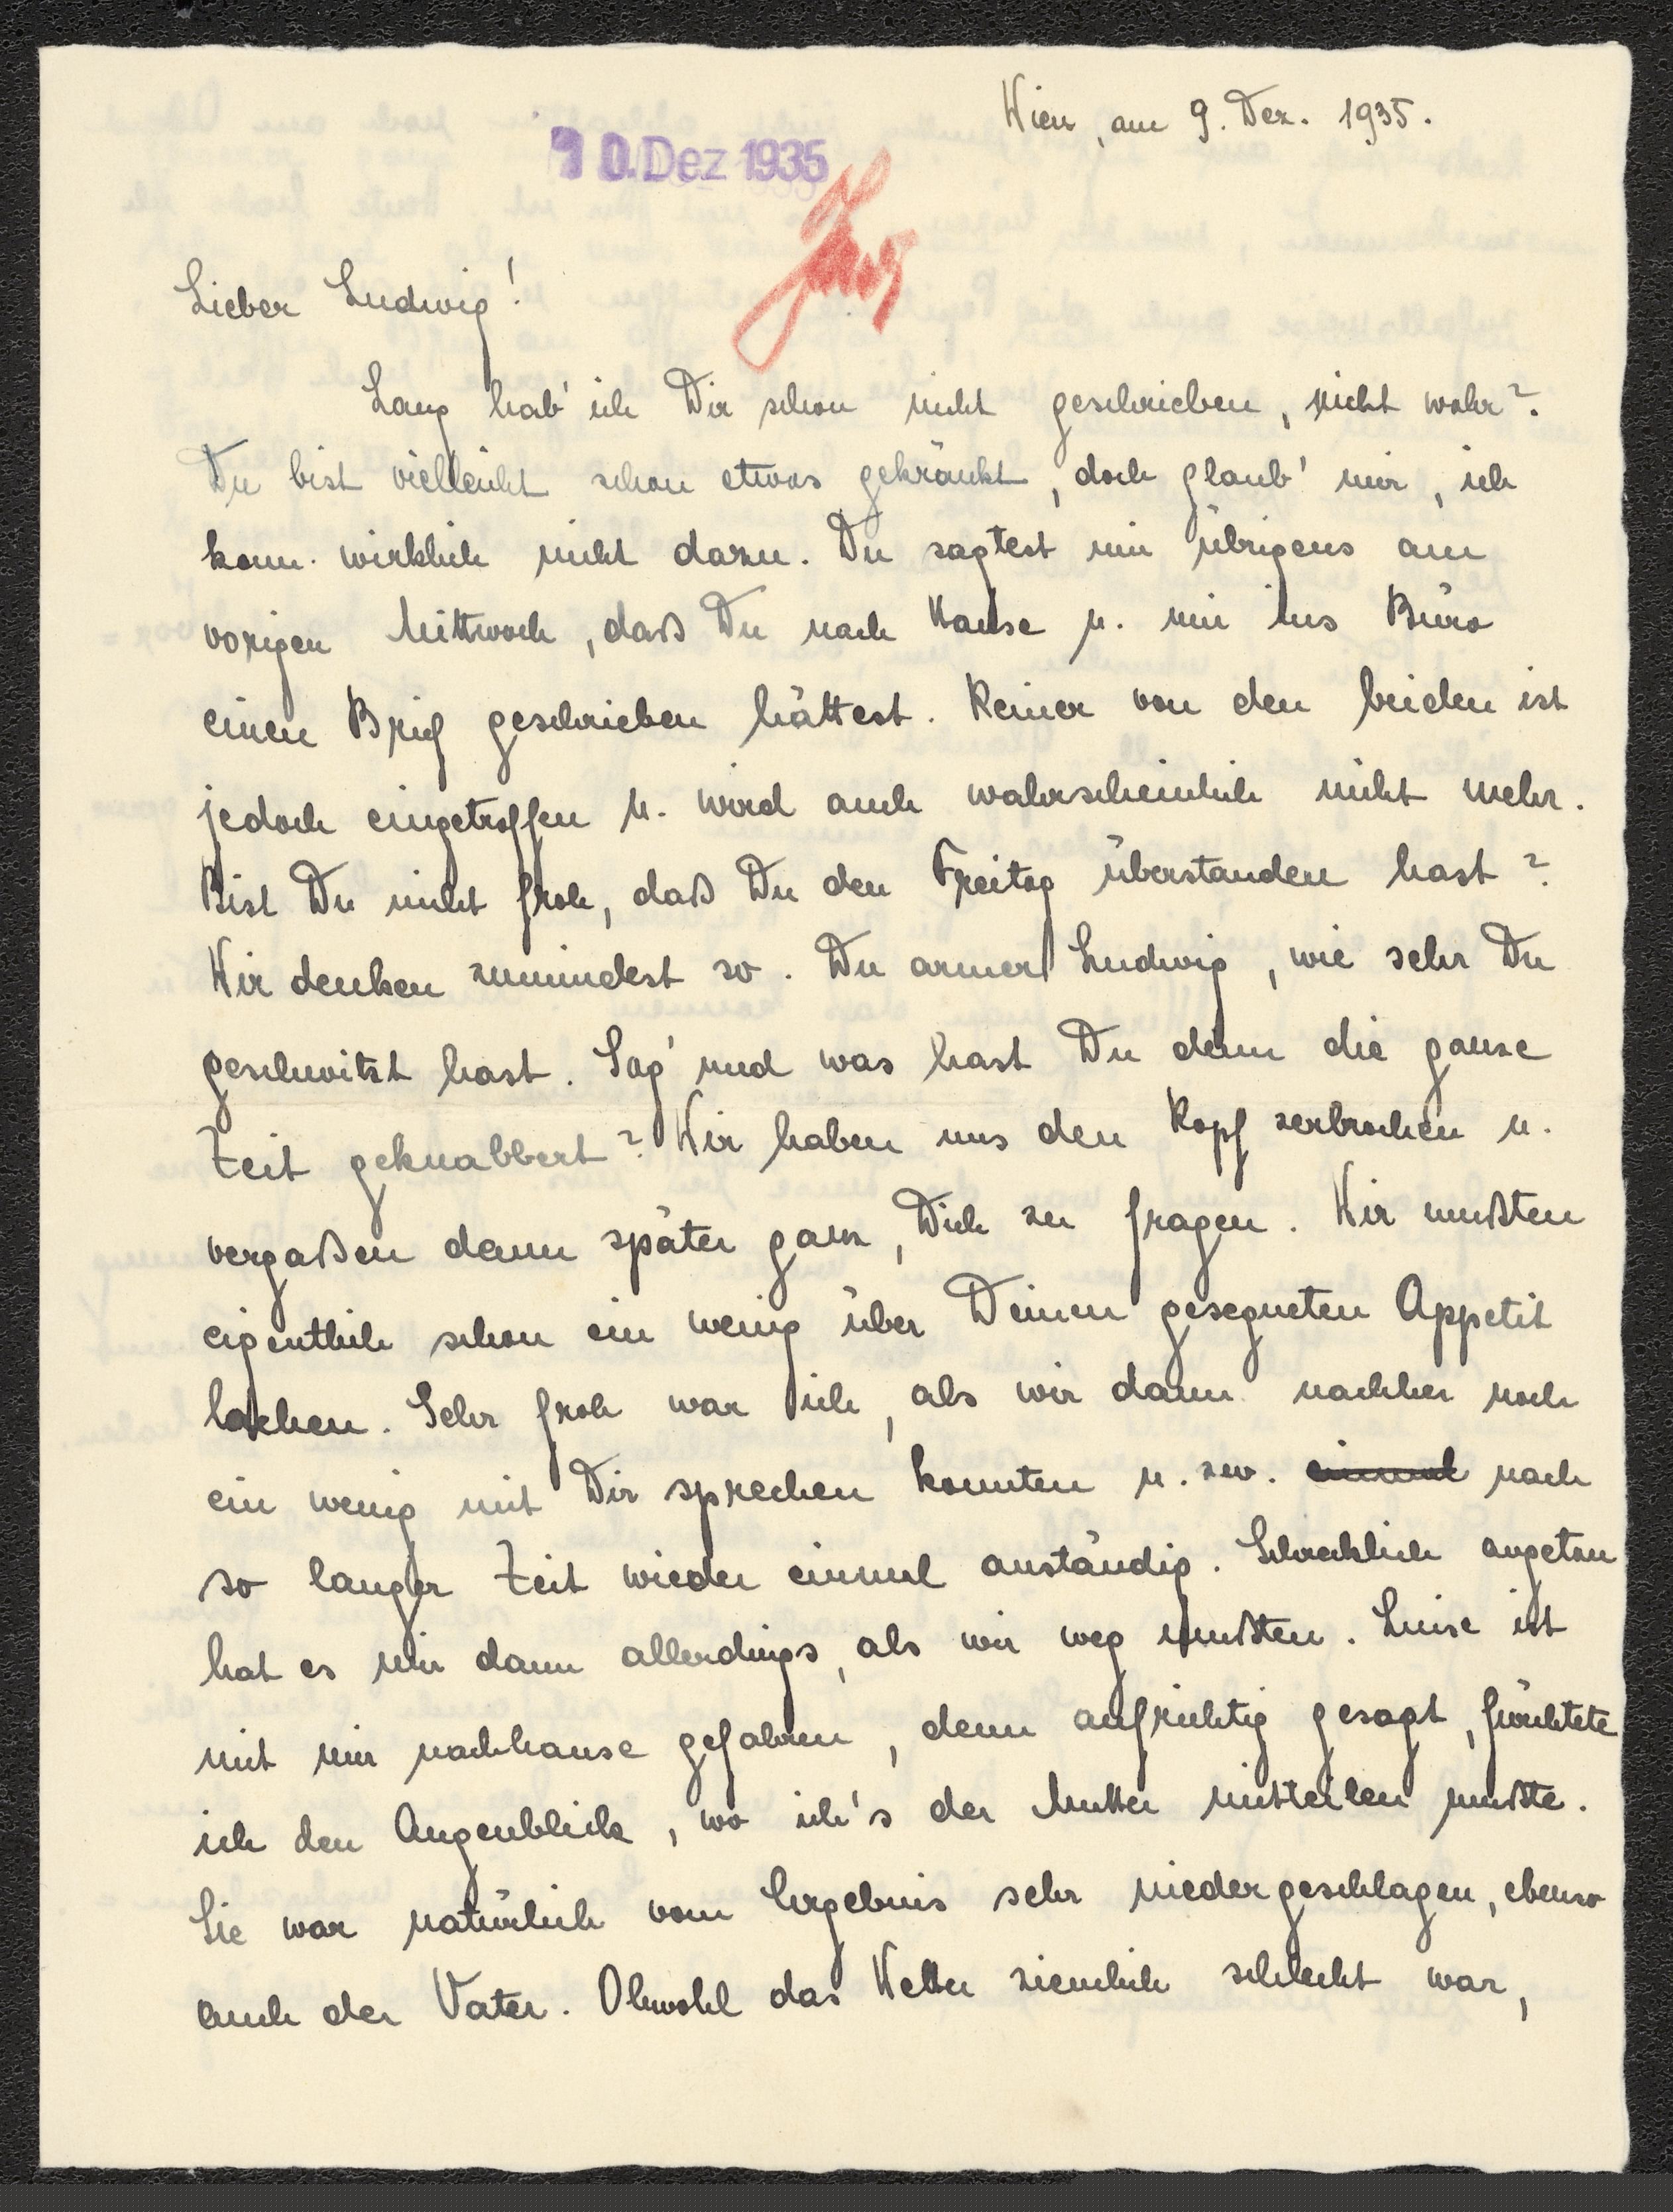 Wien, am 9. Dez. 1935.
10. Dez 1935
Lieber Ludwig!
Lang hab' ich Dir schon nicht geschrieben, nicht wahr?
Du bist vielleicht schon etwas gekränkt, doch glaub' mir, ich
kam wirklich nicht dazu. Du sagtest mir übrigens am
vorigen Mittwoch, daß Du nach Hause u. mir ins Büro
einen Brief geschrieben hättest. Keiner von den beiden ist
jedoch eingetroffen u. wird auch wahrscheinlich nicht mehr.
Bist Du nicht froh, daß Du den Freitag überstanden hast?
Wir denken zumindest so. Du armer Ludwig, wie sehr Du
geschwitzt hast. Sag' und was hast Du denn die ganze
Zeit geknabbert? Wir haben uns den Kopf zerbrochen u.
vergaßen dann später ganz, Dich zu fragen. Wir mußten
eigentlich schon ein wenig über Deinen gesegneten Appetit
lachen. Sehr froh war ich, als wir dann nachher noch
ein wenig mit Dir sprechen konnten u. zw. einmal nach
so langer Zeit wieder einmal anständig. Schrecklich angetan
hat es mir dann allerdings, als wir weg mußten. Luise ist
mit mir nachhause gefahren, denn aufrichtig gesagt, fürchtete
ich den Augenblick, wo ich's der Mutter mitteilen mußte.
Sie war natürlich vom Ergebnis sehr niedergeschlagen, ebenso
auch der Vater. Obwohl das Wetter ziemlich schlecht war,